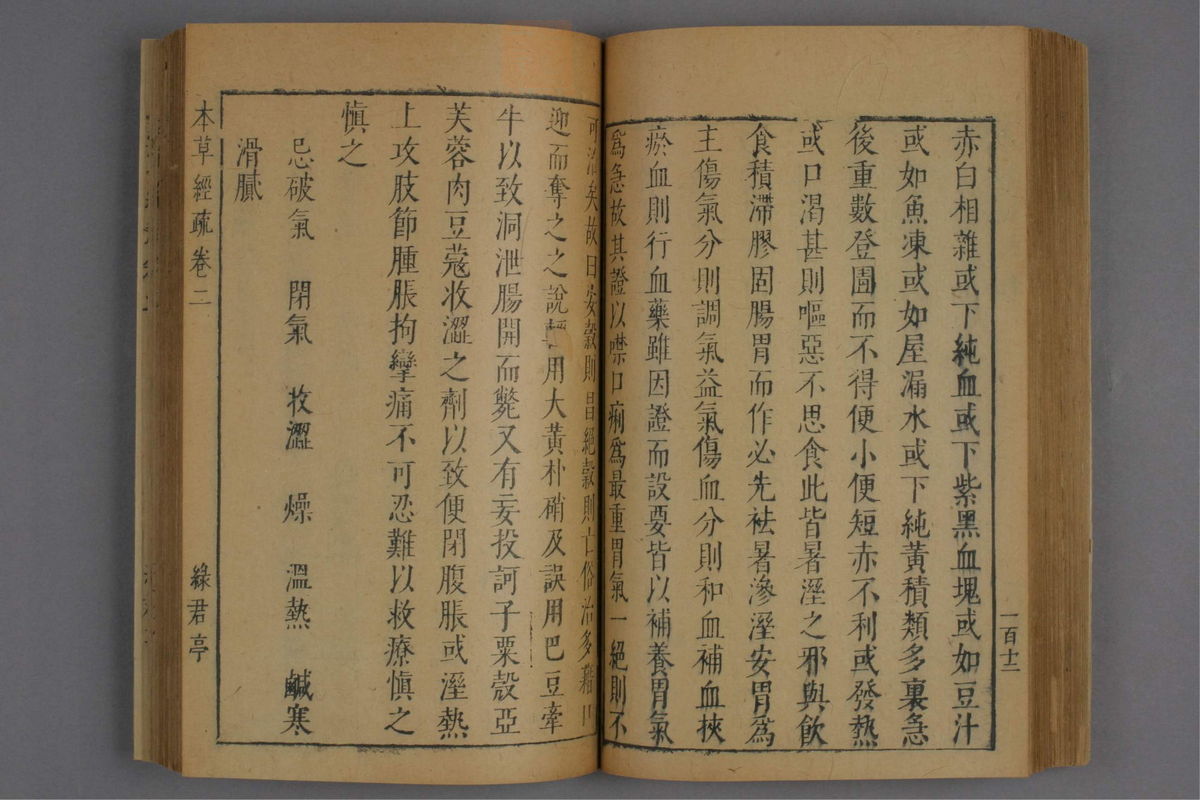 赤白相雜或下純血或下紫黑血塊或如豆汁
或如魚凍或如屋漏水或下純黃積類多裏急
後重數登圊而不得便小便短赤不利或發熱
或口渴甚則嘔惡不思食此皆暑溼之邪與飲
食積滯膠固腸胃而作必先祛暑滲溼安胃爲
主傷氣分則調氣益氣傷血分則和血補血挾
瘀血則行血藥雖因證而設要皆以補養胃氣
爲急故其證以噤口痢爲最重胃氣一絕則不
可治矣故曰安穀則昌絕穀則亡俗治多藉口
迎而奪之之說輕用大黃朴硝及誤用巴豆牽
牛以致洞泄腸開而斃又有妄投訶子粟殼亞
芙蓉肉豆蔻收澀之劑以致便閉腹脹或溼熱
上攻肢節腫脹拘攣痛不可忍難以救療慎之
慎之
忌破氣 閉氣 收澀 燥 溫熱 鹹寒
滑膩
本草經疏卷二
綠君亭
一百十二